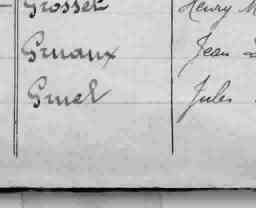 Grosset Henry M
Gruaux Jean
Gruel Jules